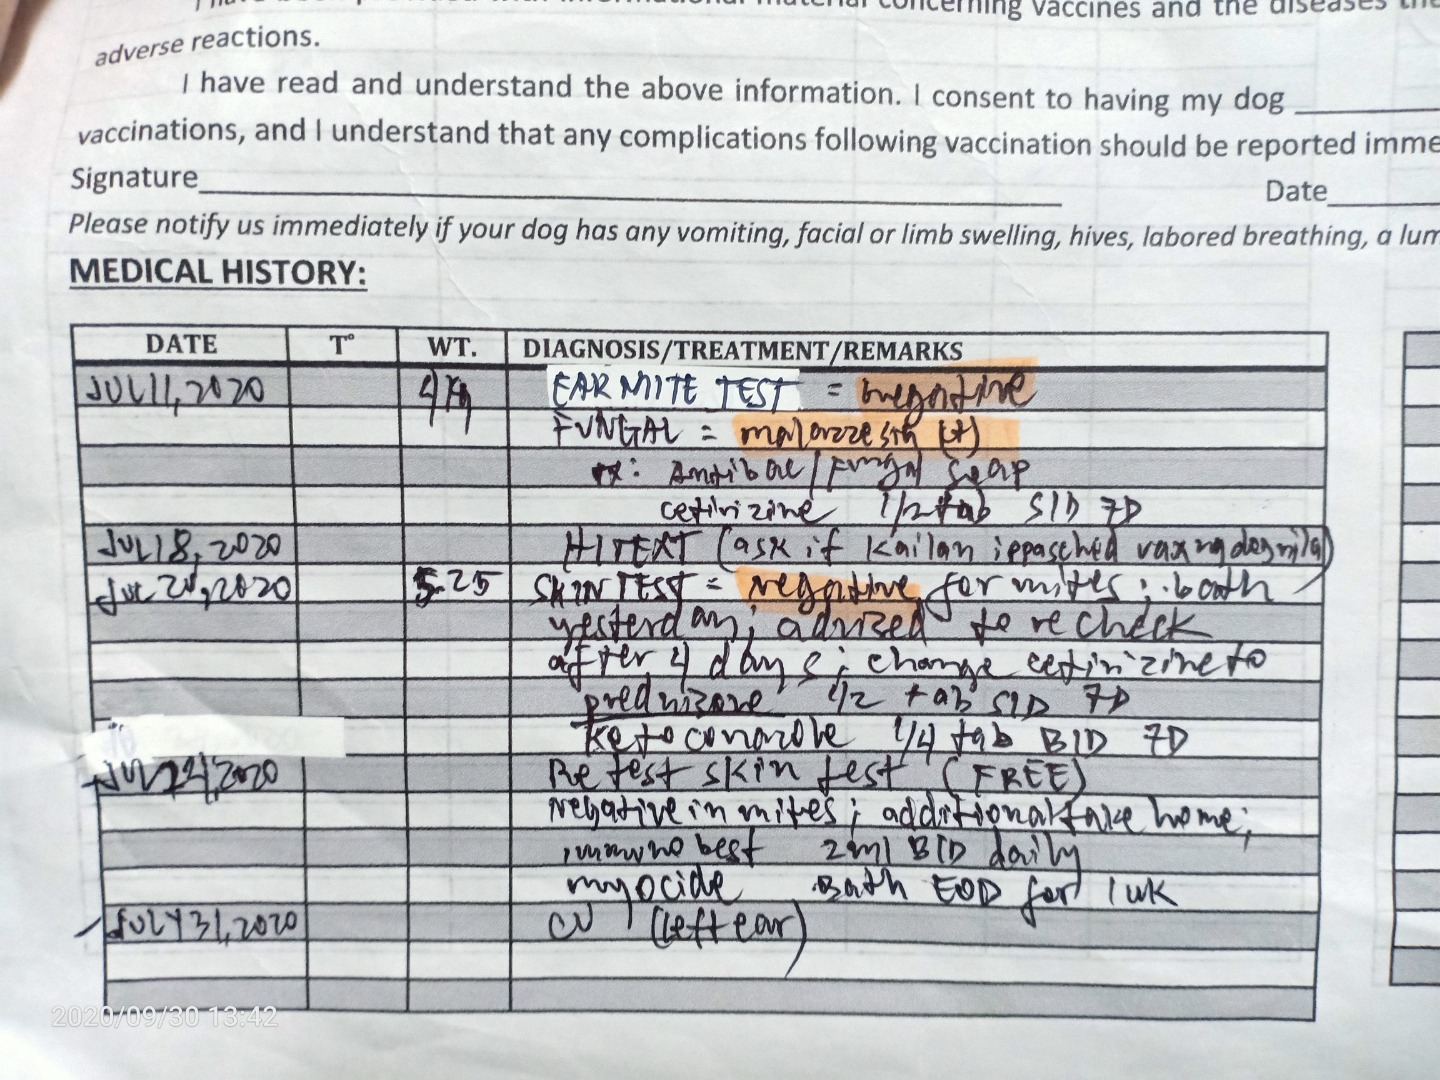 concerning vaccines and the diseases
adverse reactions.
I have read and understand the above information. I consent to having my dog
vaccinations, and I understand that any complications following vaccination should be reported imme
Signature Date
Please notify us immediately if your dog has any vomiting, facial or limb swelling, hives, labored breathing, a lum
MEDICAL HISTORY:
DATE T° WT. DIAGNOSIS/TREATMENT/REMARKS
JUL 11, 2020 4kg EAR MITE TEST = negative
FUNGAL = (+)
rx: Antibac/Fungal soap
cetirizine 1/2 tab SID 7D
JUL 18, 2020 (ask if kailan
2020 5.25 SKIN TEST = negative for mites; bath
yesterday; advized to recheck
after 4 days; change cetirizine to
prednizone 1/2 tab SID 7D
1/4 tab BID 7D
2020 Retest skin test (FREE)
Negative in mites; additional take home;
immuno best 2ml BID daily
myocide Bath EOD for 1 wk
JULY 31, 2020 (left ear)
2020/09/30 13:42